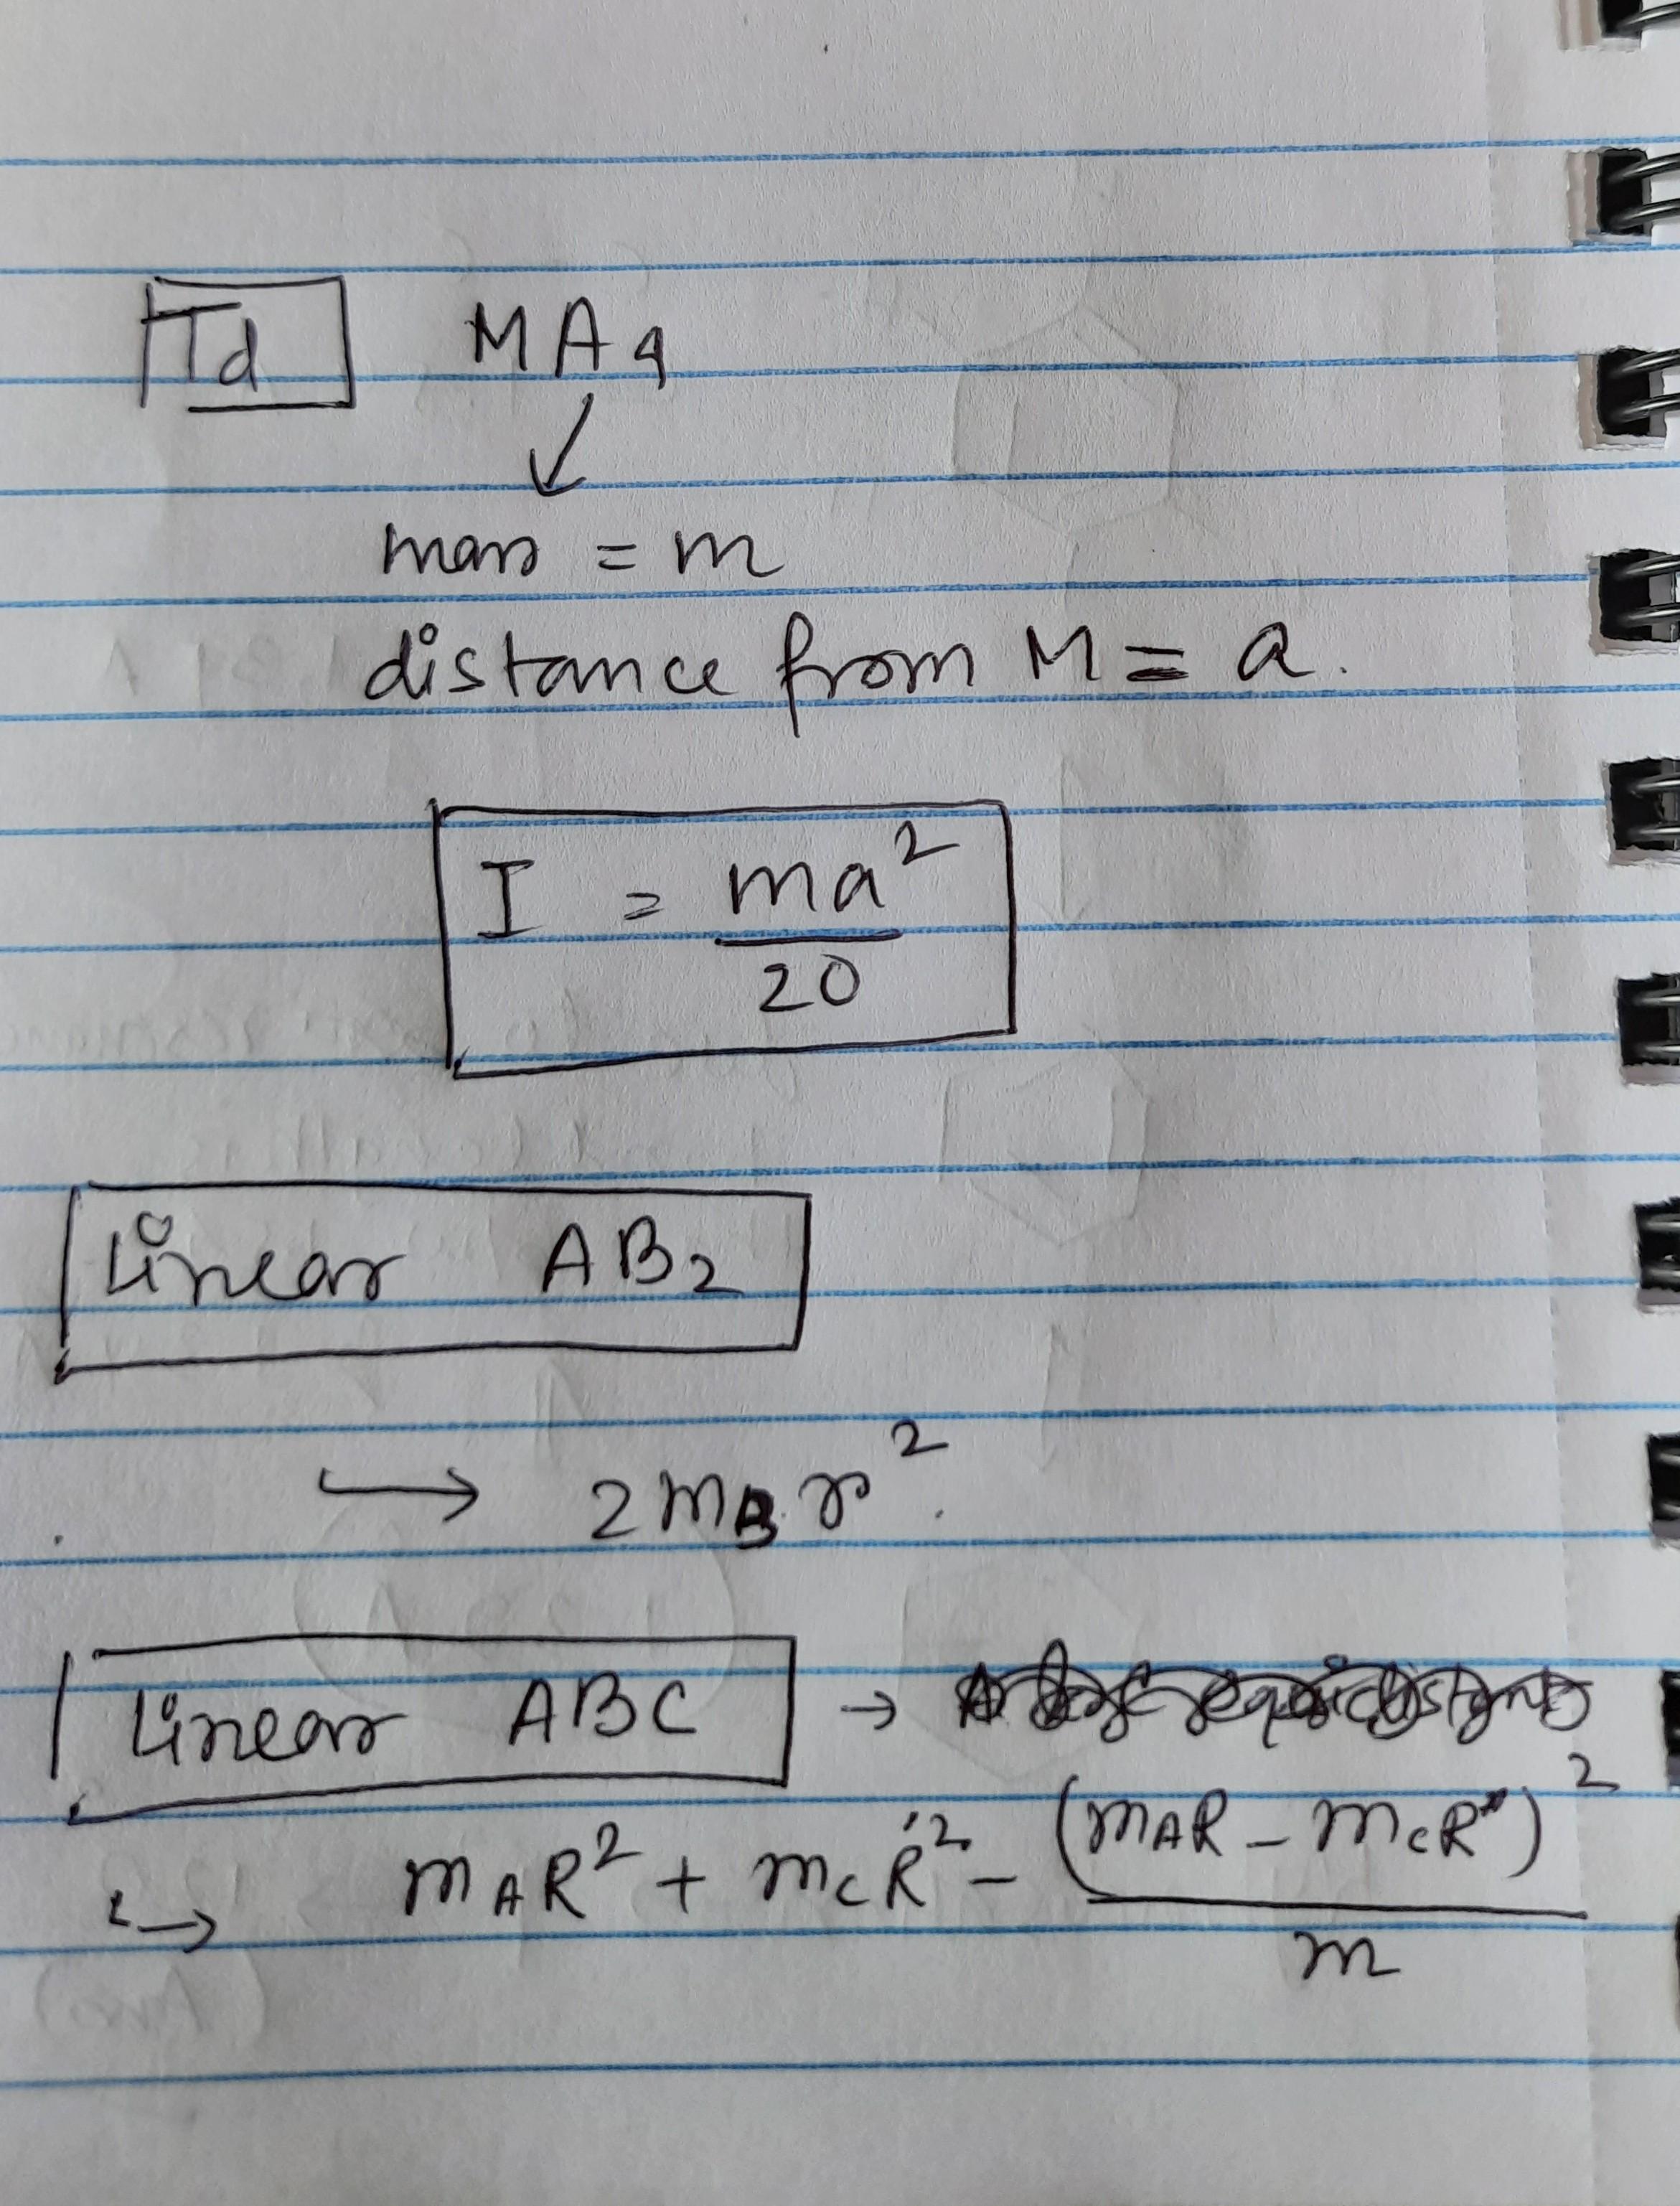 Td MA4
mass = m
distance from M = a.
I = ma²
20
Linear AB2
→ 2mB r².
Linear ABC →
→ mAR² + mCR'² - (mAR - mCR')²
m